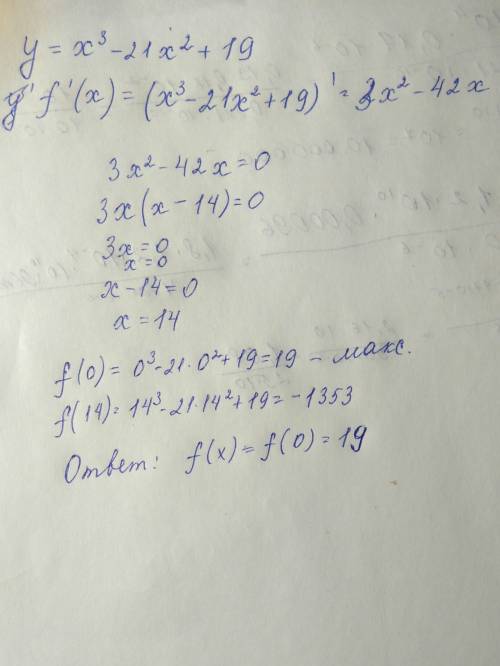 y = x³ - 21x² + 19
f'(x) = (x³ - 21x² + 19)' = 3x² - 42x
3x² - 42x = 0
3x(x - 14) = 0
3x = 0
x = 0
x - 14 = 0
x = 14
f(0) = 0³ - 21·0² + 19 = 19 - макс.
f(14) = 14³ - 21·14² + 19 = -1353
Ответ: f(x) = f(0) = 19